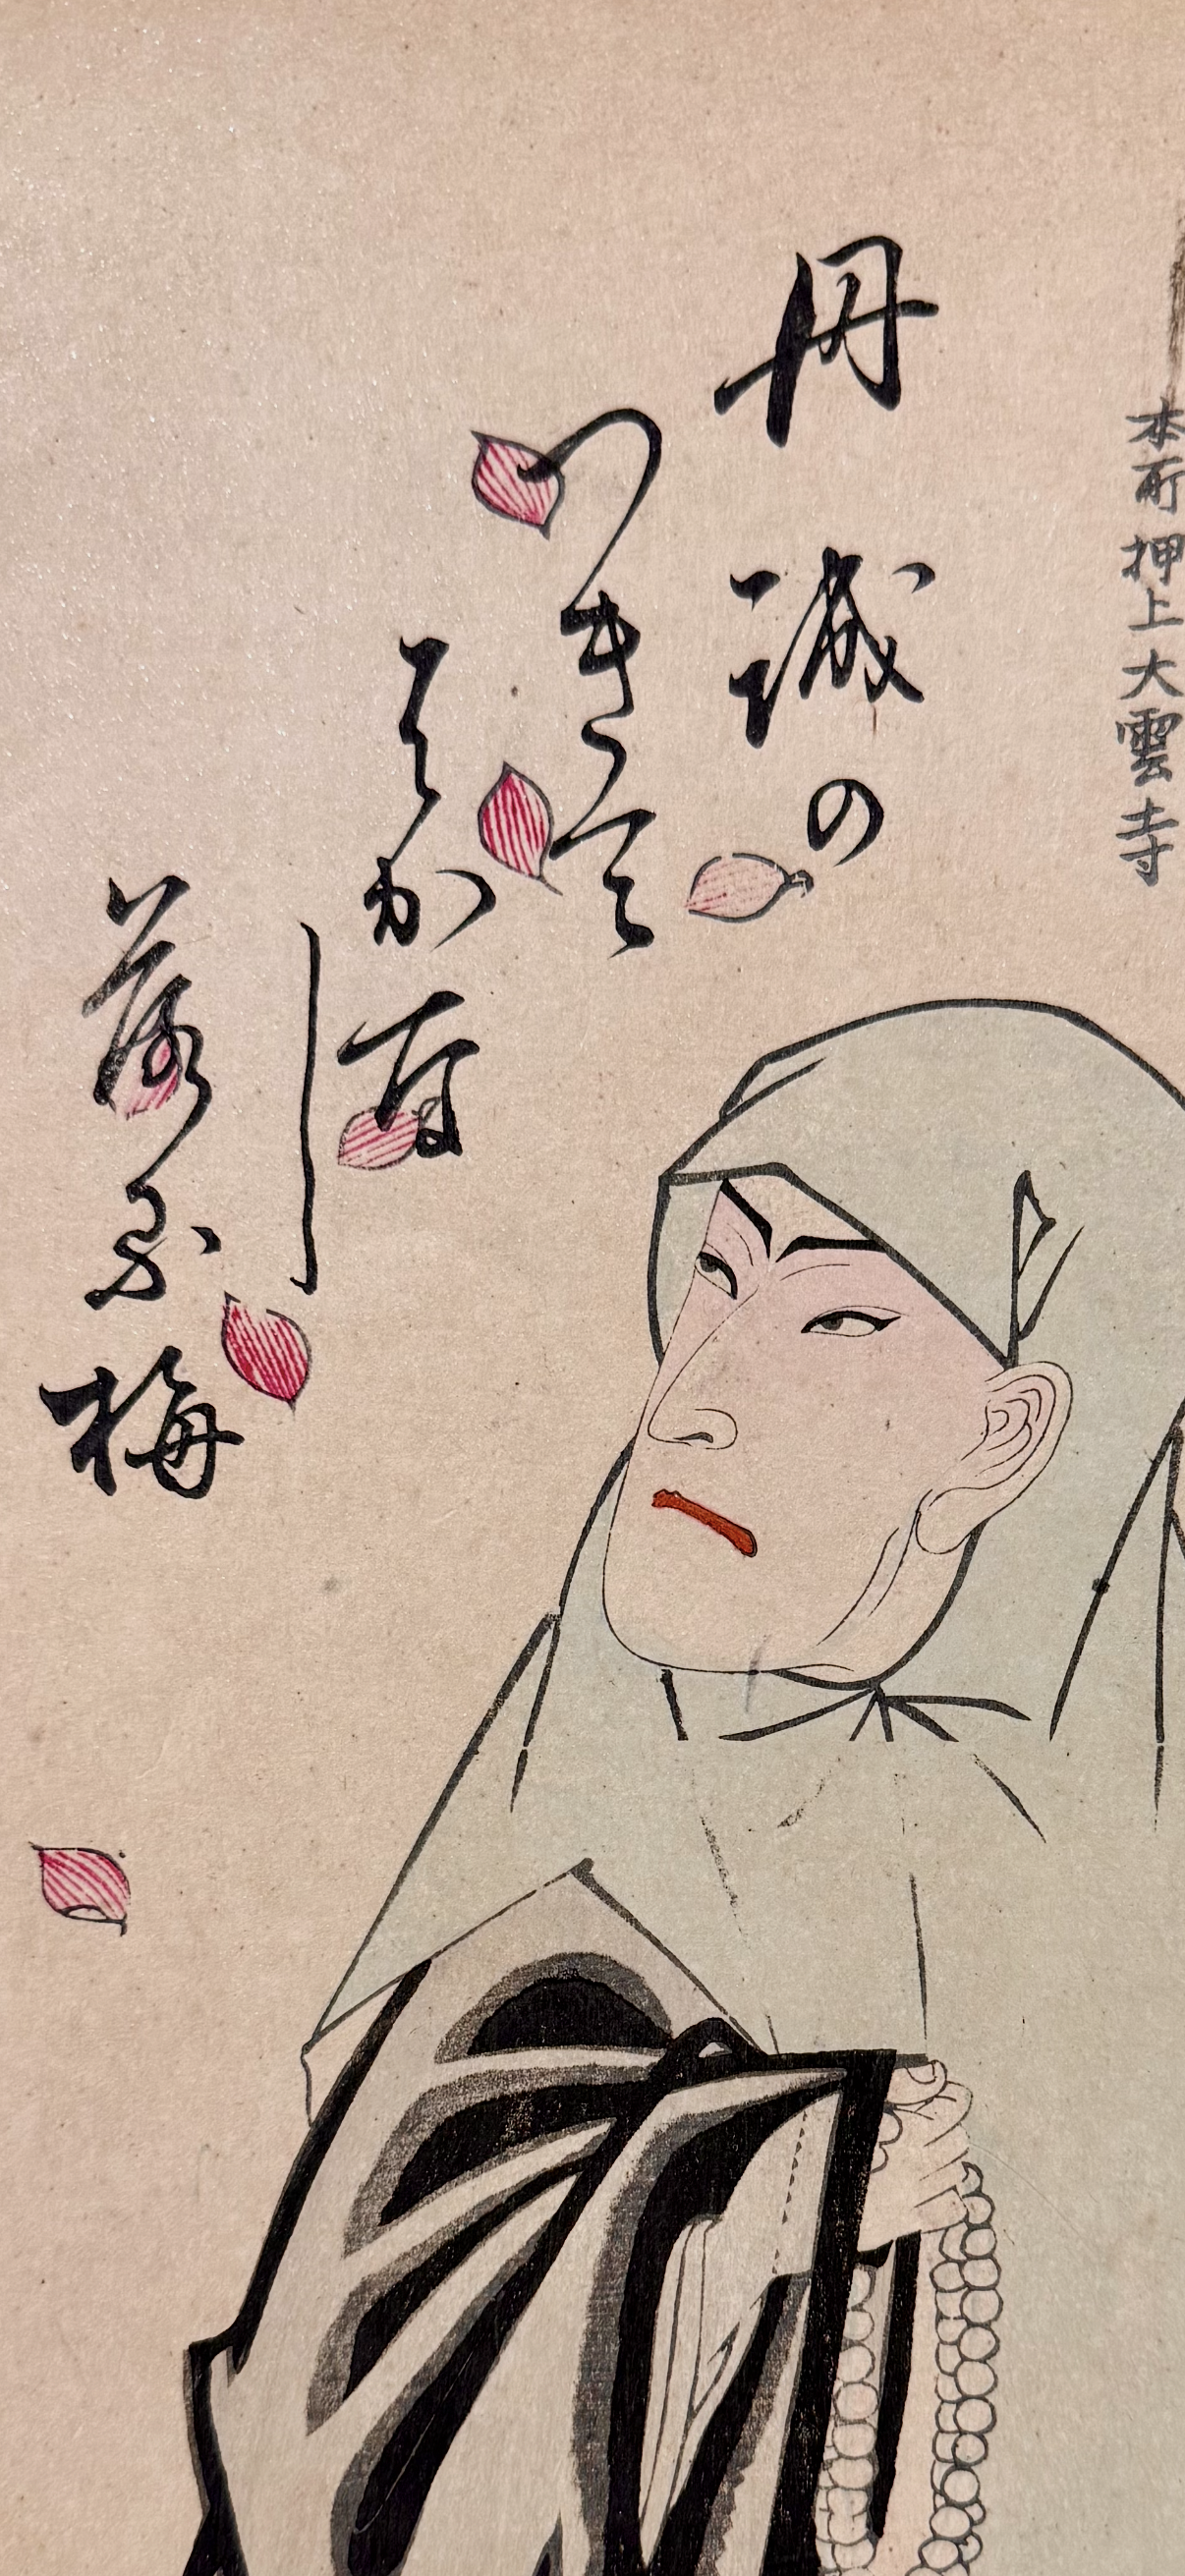 本所押上大雲寺
丹誠の
つきて
はかな
し
落る梅